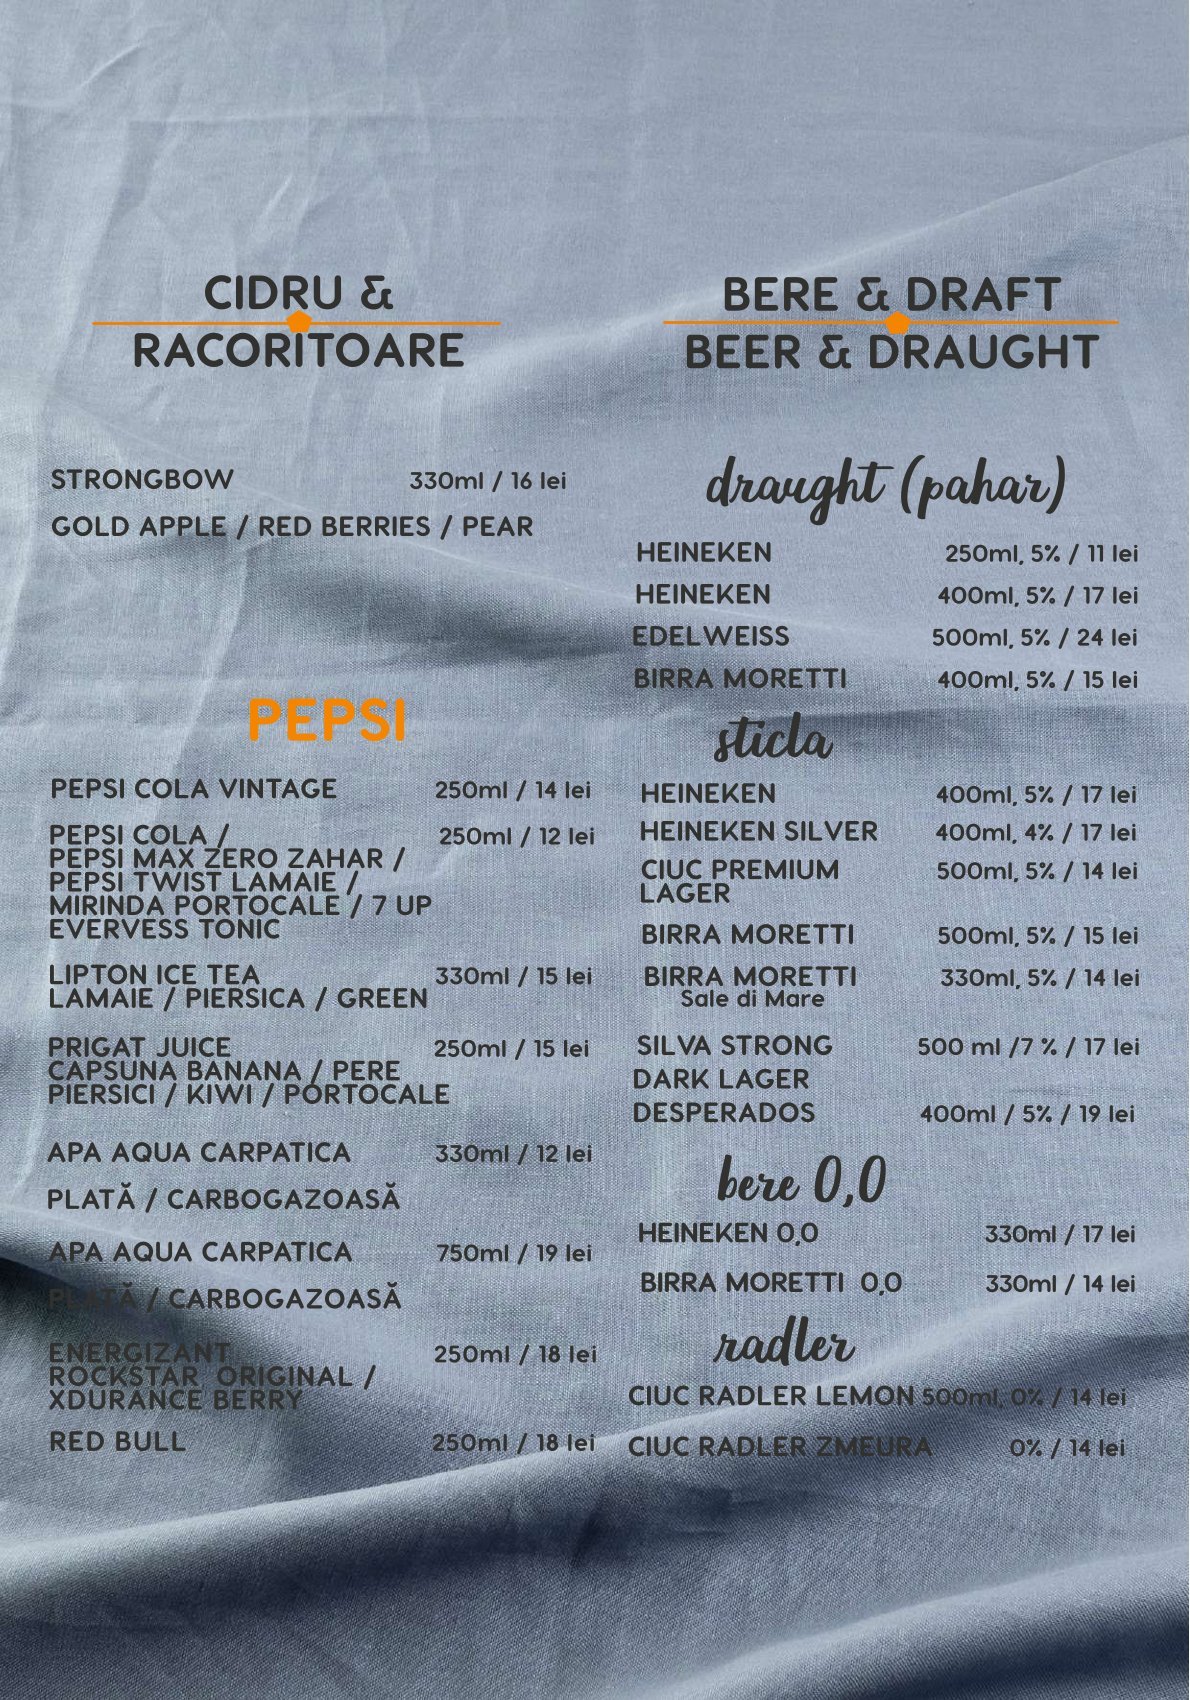 CIDRU &
RACORITOARE
STRONGBOW 330ml / 16 lei
GOLD APPLE / RED BERRIES / PEAR
PEPSI
PEPSI COLA VINTAGE 250ml / 14 lei
PEPSI COLA / 250ml / 12 lei
PEPSI MAX ZERO ZAHAR /
PEPSI TWIST LAMAIE /
MIRINDA PORTOCALE / 7 UP
EVERVESS TONIC
LIPTON ICE TEA 330ml / 15 lei
LAMAIE / PIERSICA / GREEN
PRIGAT JUICE 250ml / 15 lei
CAPSUNA BANANA / PERE
PIERSICI / KIWI / PORTOCALE
APA AQUA CARPATICA 330ml / 12 lei
PLATĂ / CARBOGAZOASĂ
APA AQUA CARPATICA 750ml / 19 lei
PLATĂ / CARBOGAZOASĂ
ENERGIZANT 250ml / 18 lei
ROCKSTAR ORIGINAL /
XDURANCE BERRY
RED BULL 250ml / 18 lei
BERE & DRAFT
BEER & DRAUGHT
draught (pahar)
HEINEKEN 250ml, 5% / 11 lei
HEINEKEN 400ml, 5% / 17 lei
EDELWEISS 500ml, 5% / 24 lei
BIRRA MORETTI 400ml, 5% / 15 lei
sticla
HEINEKEN 400ml, 5% / 17 lei
HEINEKEN SILVER 400ml, 4% / 17 lei
CIUC PREMIUM 500ml, 5% / 14 lei
LAGER
BIRRA MORETTI 500ml, 5% / 15 lei
BIRRA MORETTI 330ml, 5% / 14 lei
Sale di Mare
SILVA STRONG 500 ml /7 % / 17 lei
DARK LAGER
DESPERADOS 400ml / 5% / 19 lei
bere 0,0
HEINEKEN 0,0 330ml / 17 lei
BIRRA MORETTI 0,0 330ml / 14 lei
radler
CIUC RADLER LEMON 500ml, 0% / 14 lei
CIUC RADLER ZMEURA 0% / 14 lei